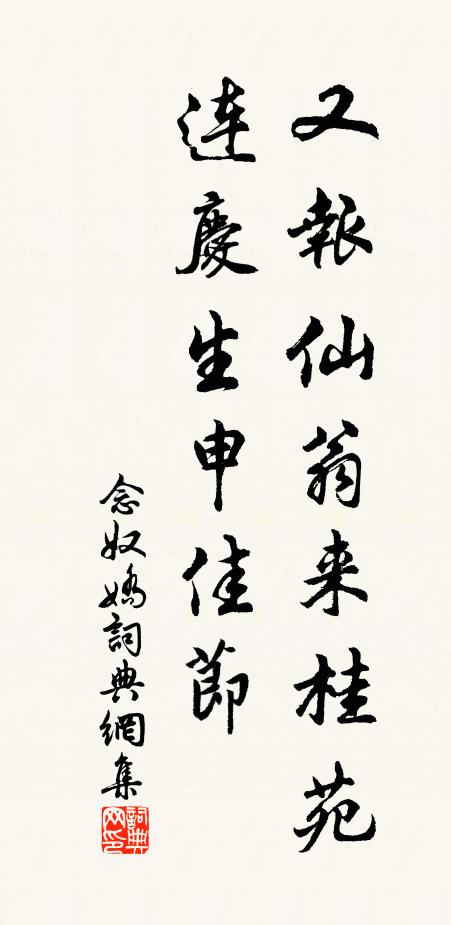 又報仙翁来桂苑
連慶生申佳節
念奴嬌詞典網集
詞典网印